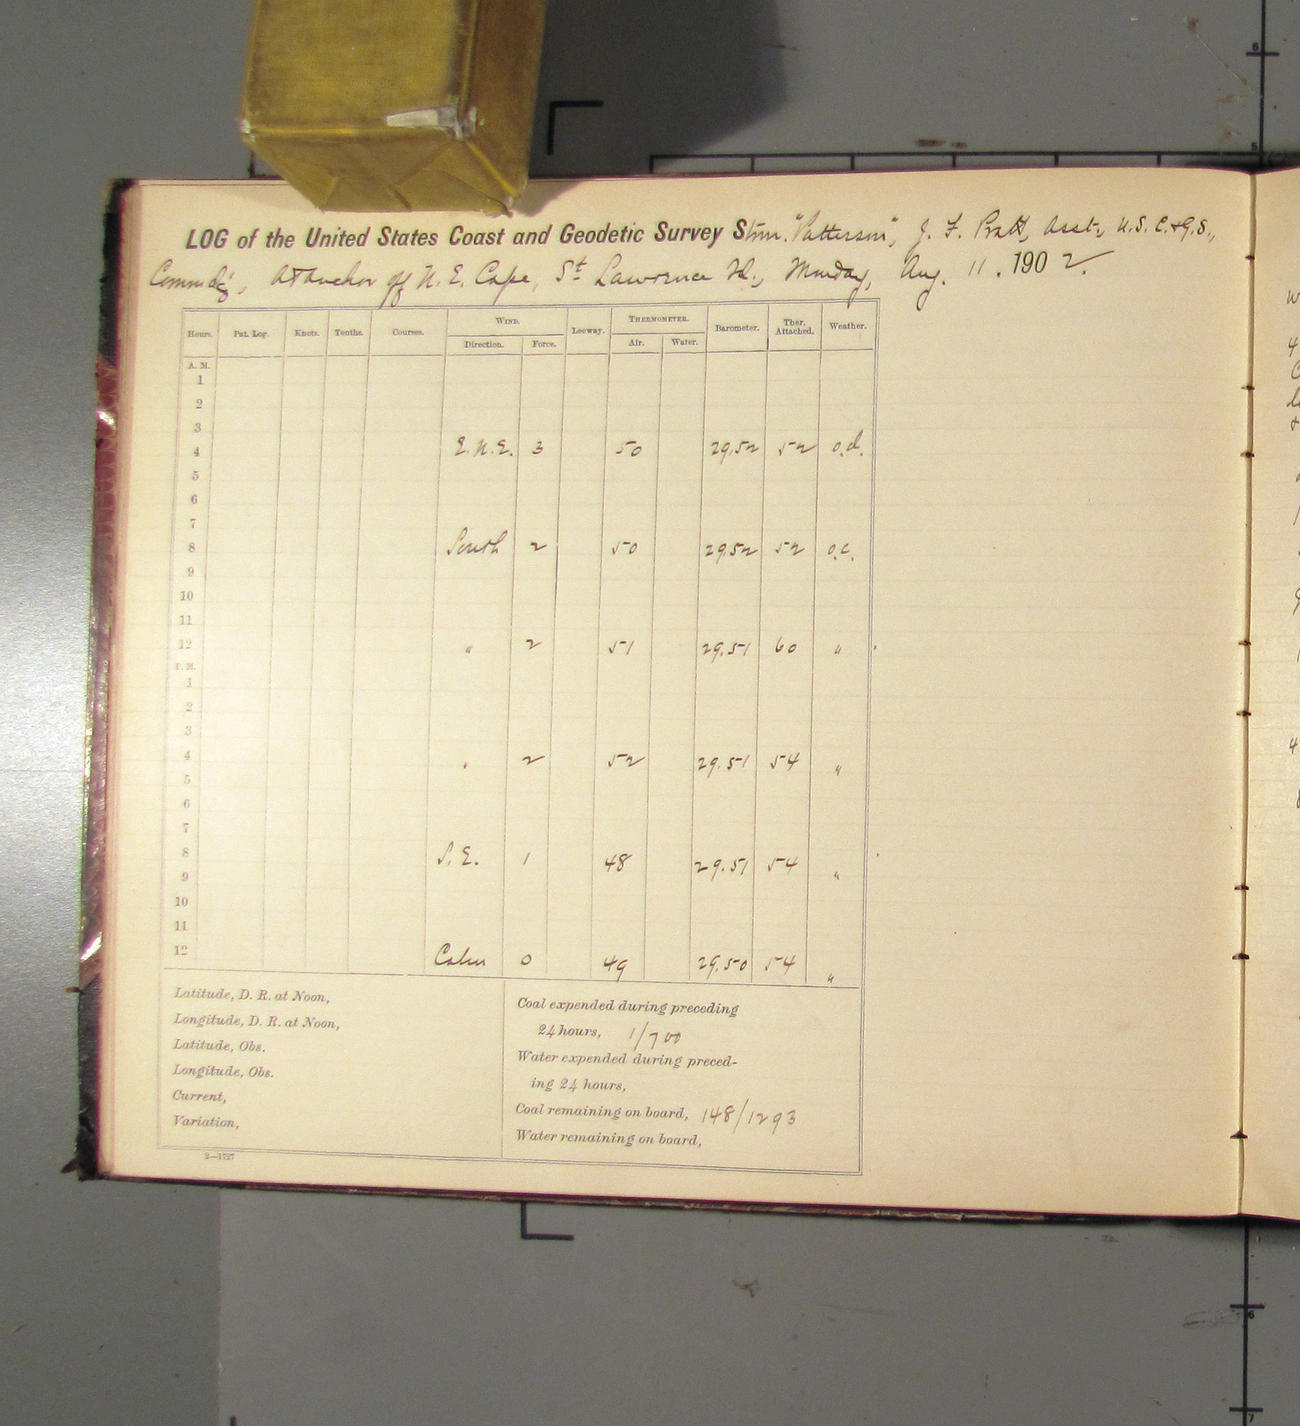 LOG of the United States Coast and Geodetic Survey Stmr. "Patterson", J. F. Pratt, Asst., U.S.C.&G.S.,
Commd'g, At anchor off N.E. Cape, St Lawrence Id., Monday, Aug. 11. 1902.
Hours. Pat. Log. Knots. Tenths. Courses. WIND. Leeway. THERMOMETER. Barometer. Ther. Attached. Weather.
Direction. Force. Air. Water.
A. M.
1
2
3
4 E.N.E. 3 50 29.52 52 o.d.
5
6
7
8 South 2 50 29.52 52 o.c.
9
10
11
12 " 2 51 29.51 60 "
P. M.
1
2
3
4 " 2 52 29.51 54 "
5
6
7
8 S.E. 1 48 29.51 54 "
9
10
11
12 Calm 0 49 29.50 54 "
Latitude, D. R. at Noon,
Longitude, D. R. at Noon,
Latitude, Obs.
Longitude, Obs.
Current,
Variation,
Coal expended during preceding
24 hours, 1/700
Water expended during preced-
ing 24 hours,
Coal remaining on board, 148/1293
Water remaining on board,
2—1727